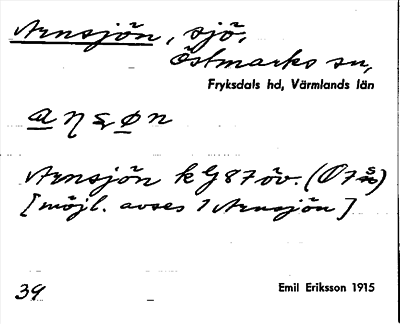 Arnsjön, sjö,
Östmarks sn,
Fryksdals hd, Värmlands län
Arnsjön k G 87 öv. (O 7 s)
[möjl. avses 1 Arnsjön]
39
Emil Eriksson 1915